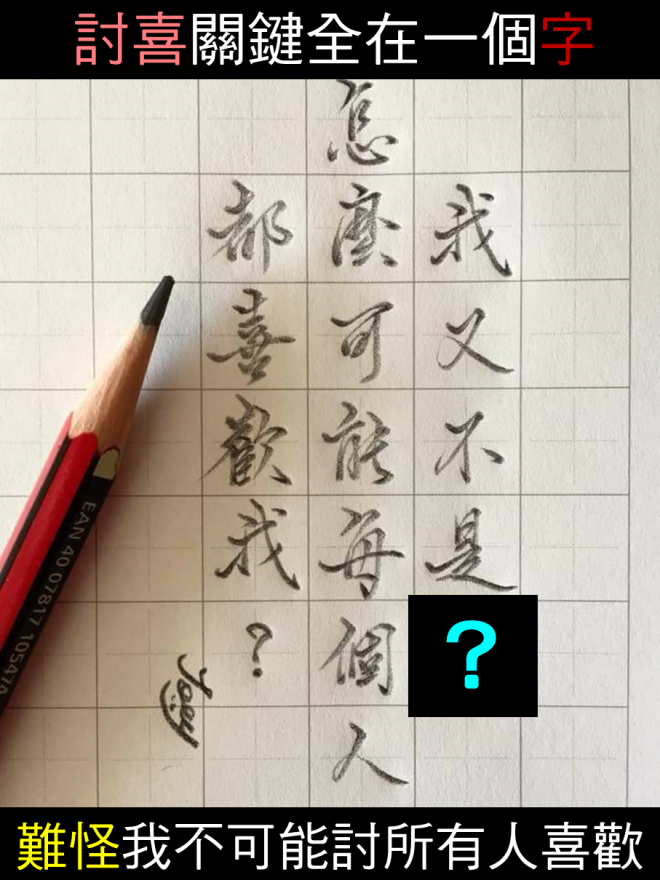 討喜關鍵全在一個字
我又不是
?
怎麼可能每個人
都喜歡我?
Joey
EAN 40 07817 10547
難怪我不可能討所有人喜歡